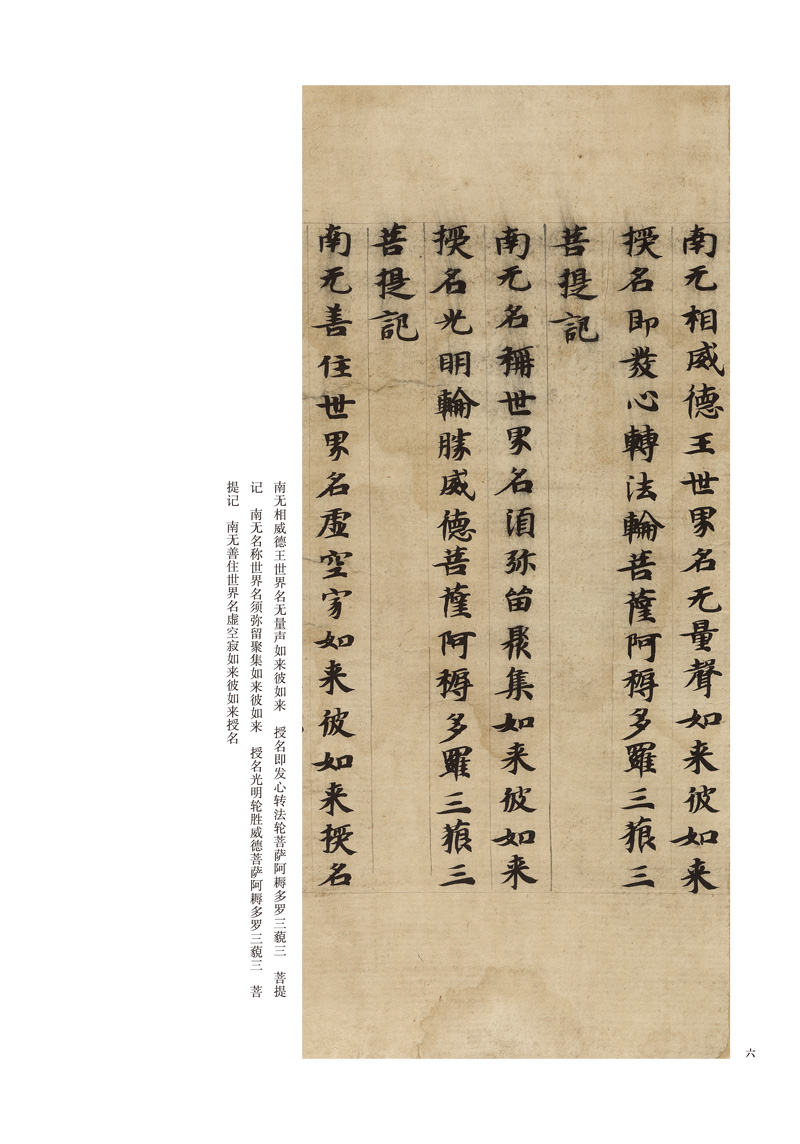 南无相威德王世界名无量聲如来彼如来
授名即發心轉法輪菩薩阿耨多羅三藐三
菩提記
南无名稱世界名須弥留聚集如来彼如来
授名光明輪勝威德菩薩阿耨多羅三藐三
菩提記
南无善住世界名虛空寂如来彼如来授名
南无相威德王世界名无量声如来彼如来　授名即发心转法轮菩萨阿耨多罗三藐三　菩提
记　南无名称世界名须弥留聚集如来彼如来　授名光明轮胜威德菩萨阿耨多罗三藐三　菩
提记　南无善住世界名虚空寂如来彼如来授名
六